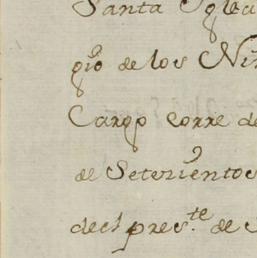 Santa Ygle
gio de los Niñ
Cargo corre de
de Setezientos
del pres.te de